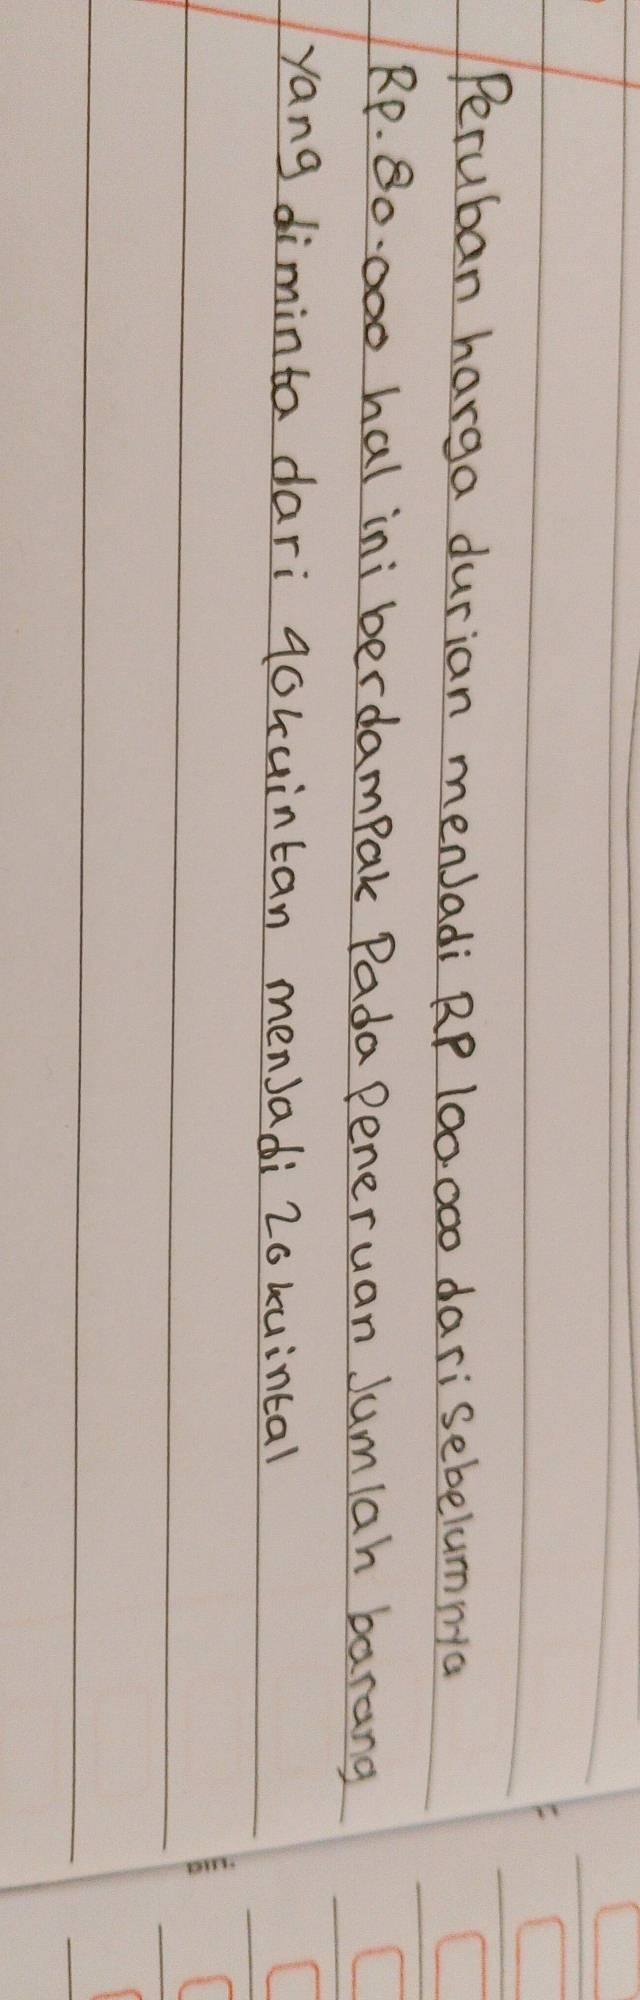 Peruban harga durian menjadi RP 100.000 dari sebelumnya
Rp. 80.000 hal ini berdampak Pada Peneruan Jumlah barang
yang diminta dari 40kuintan menjadi 20 kuintal